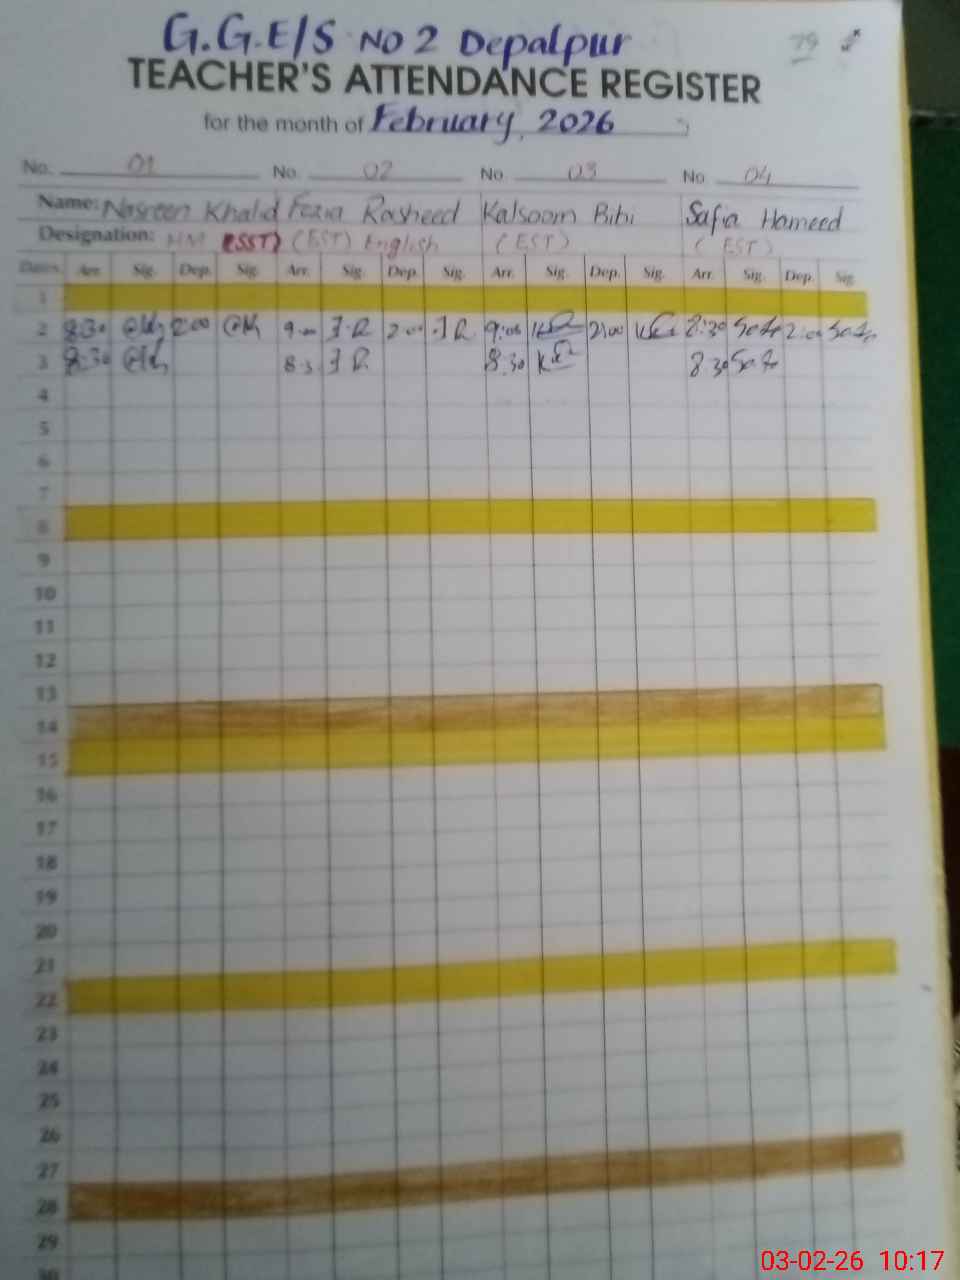 G.G.E/S NO 2 Depalpur
79
TEACHER'S ATTENDANCE REGISTER
for the month of February, 2026
No. 01 No. 02 No. 03 No. 04
Name: Nasreen Khalid Fozia Rasheed Kalsoom Bibi Safia Hameed
Designation: HM (SST) (EST) English (EST) (EST)
Dates Arr. Sig. Dep. Sig. Arr. Sig. Dep. Sig. Arr. Sig. Dep. Sig. Arr. Sig. Dep. Sig.
1
2 8:30 2:00 9:00 F.R 2:00 F.R 9:00 2:00 8:30 Safa 2:00 Safa
3 8:30 8:3 F R 8:30 8:30 Safa
4
5
6
7
8
9
10
11
12
13
14
15
16
17
18
19
20
21
22
23
24
25
26
27
28
29
30
03-02-26 10:17